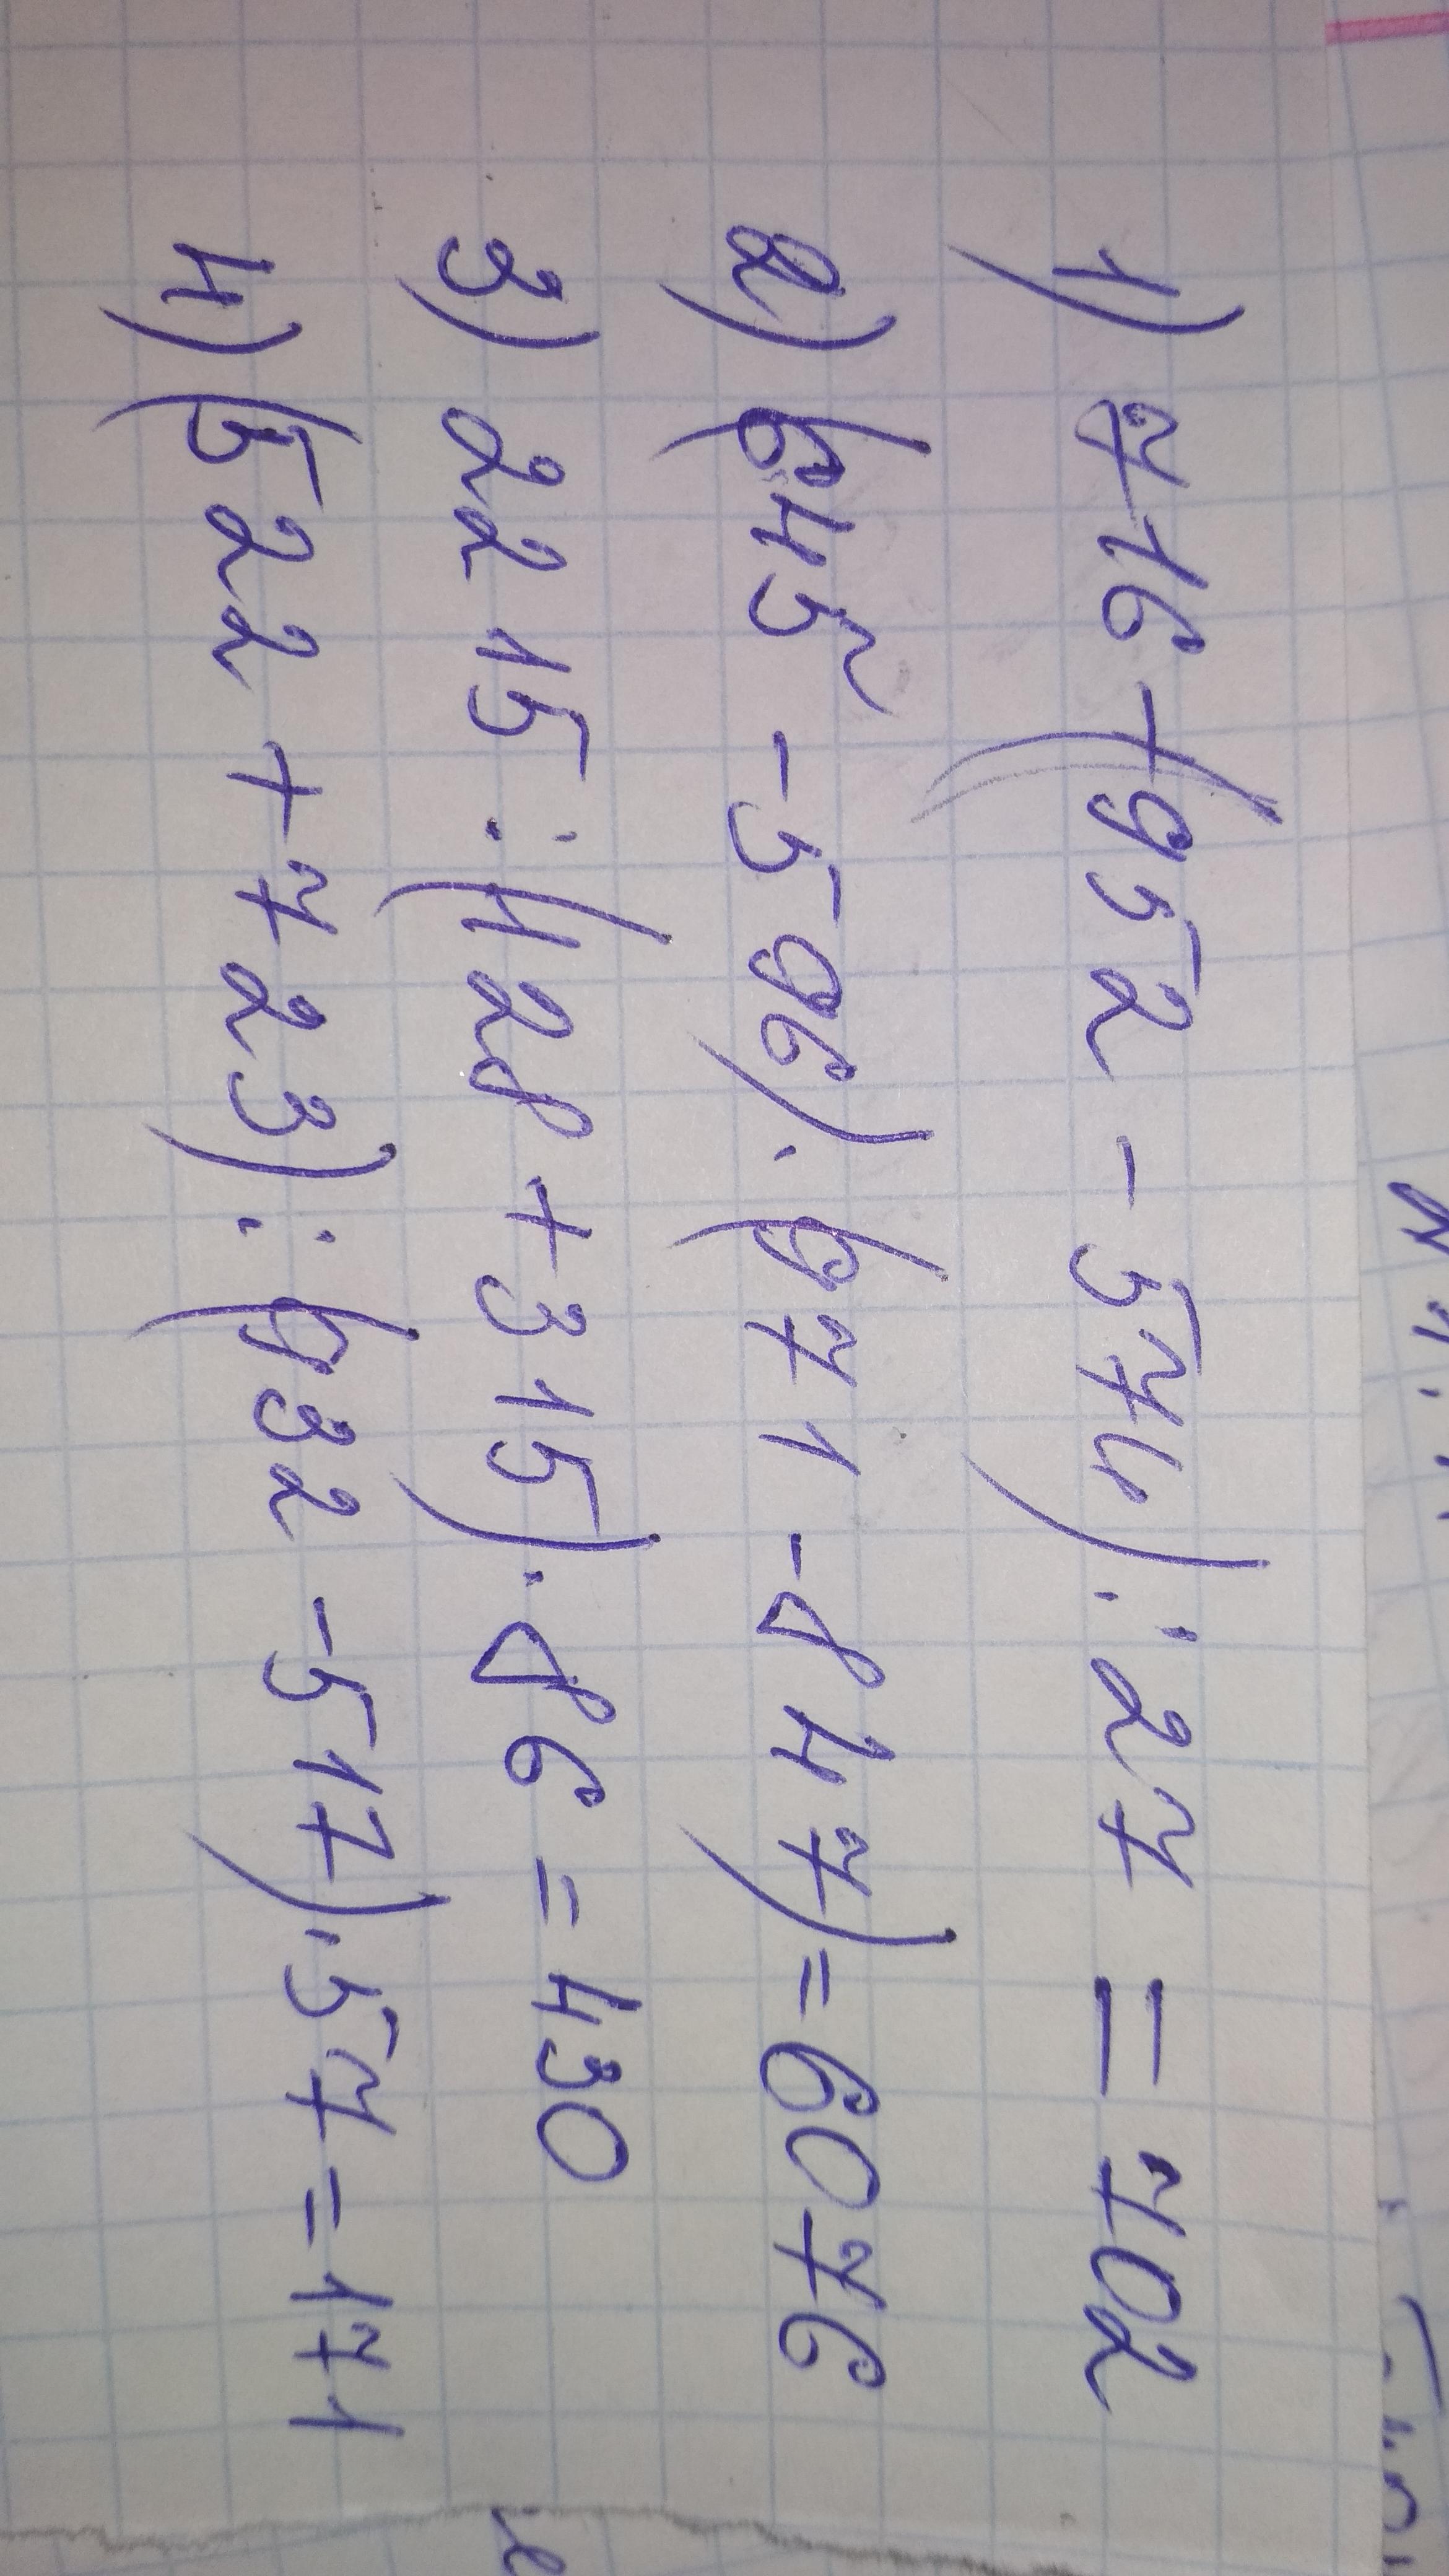 1) 716 - (952 - 574) : 27 = 702
2) (645 - 596) · (971 - 847) = 6076
3) 2215 : (128 + 315) · 86 = 430
4) (522 + 723) : (932 - 517) · 57 = 171